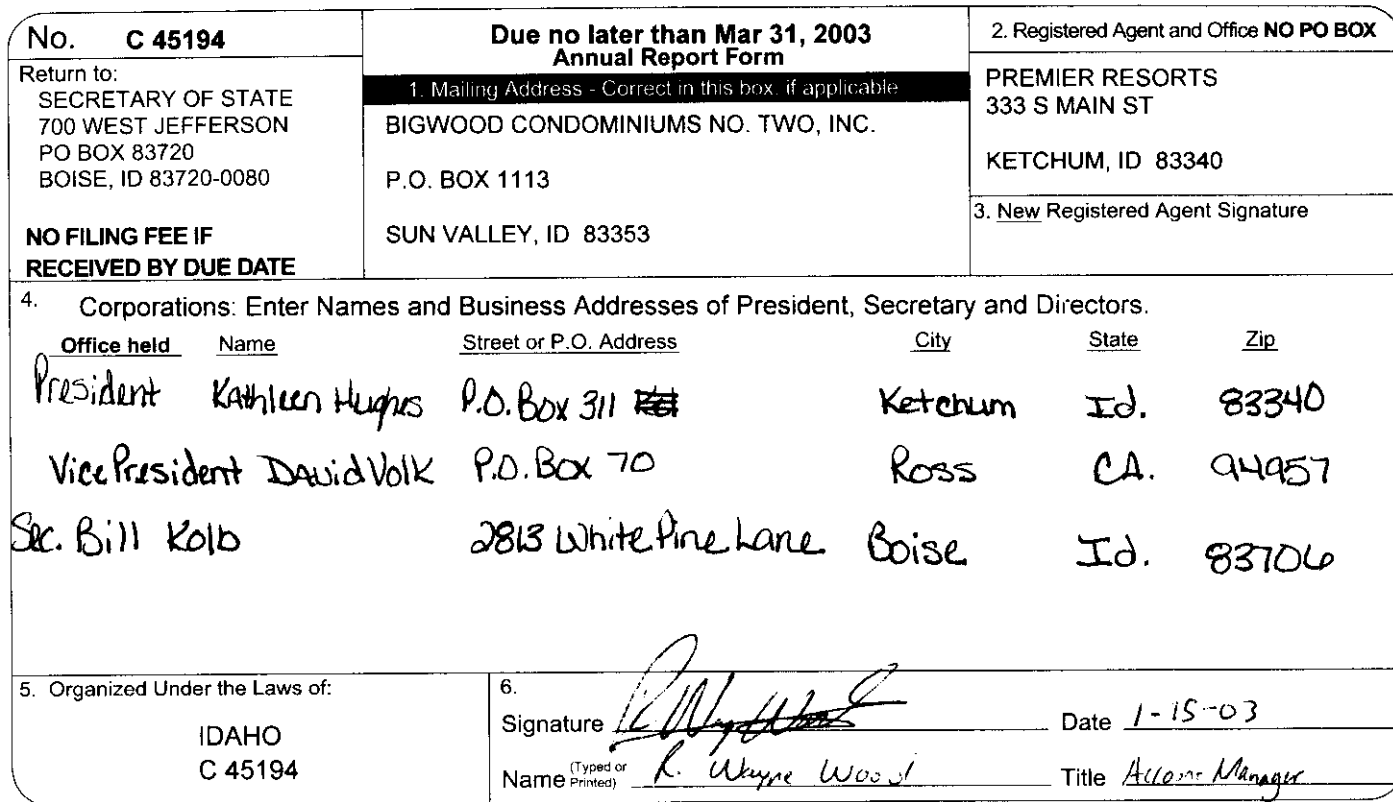 No. C 45194
Return to:
SECRETARY OF STATE
700 WEST JEFFERSON
PO BOX 83720
BOISE, ID 83720-0080
NO FILING FEE IF
RECEIVED BY DUE DATE
Due no later than Mar 31, 2003
Annual Report Form
1. Mailing Address - Correct in this box, if applicable
BIGWOOD CONDOMINIUMS NO. TWO, INC.
P.O. BOX 1113
SUN VALLEY, ID 83353
2. Registered Agent and Office NO PO BOX
PREMIER RESORTS
333 S MAIN ST
KETCHUM, ID 83340
3. New Registered Agent Signature
4. Corporations: Enter Names and Business Addresses of President, Secretary and Directors.
Office held Name Street or P.O. Address City State Zip
President Kathleen Hughes P.O. Box 311 Ketchum Id. 83340
Vice President David Volk P.O. Box 70 Ross CA. 94957
Sec. Bill Kolb 2813 White Pine Lane Boise Id. 83706
5. Organized Under the Laws of:
IDAHO
C 45194
6.
Signature R Wayne Wood Date 1-15-03
Name (Typed or Printed) R. Wayne Wood Title Manager